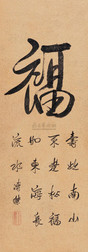 福
壽比南山
不老松福
如東海長
流水